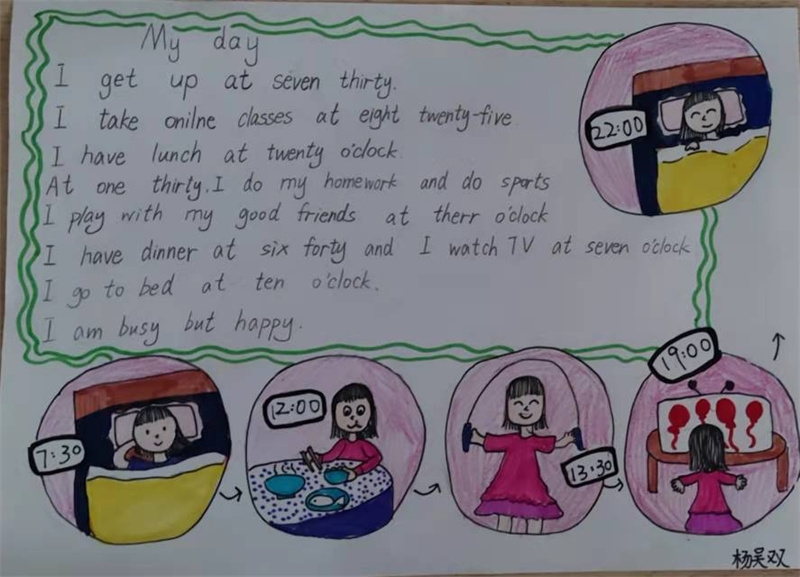 My day
I get up at seven thirty.
I take onilne classes at eight twenty-five
I have lunch at twenty o'clock
At one thirty.I do my homework and do sports
I play with my good friends at therr o'clock
I have dinner at six forty and I watch TV at seven o'clock
I go to bed at ten o'clock.
I am busy but happy.
22:00
7:30
12:00
13:30
19:00
杨吴双